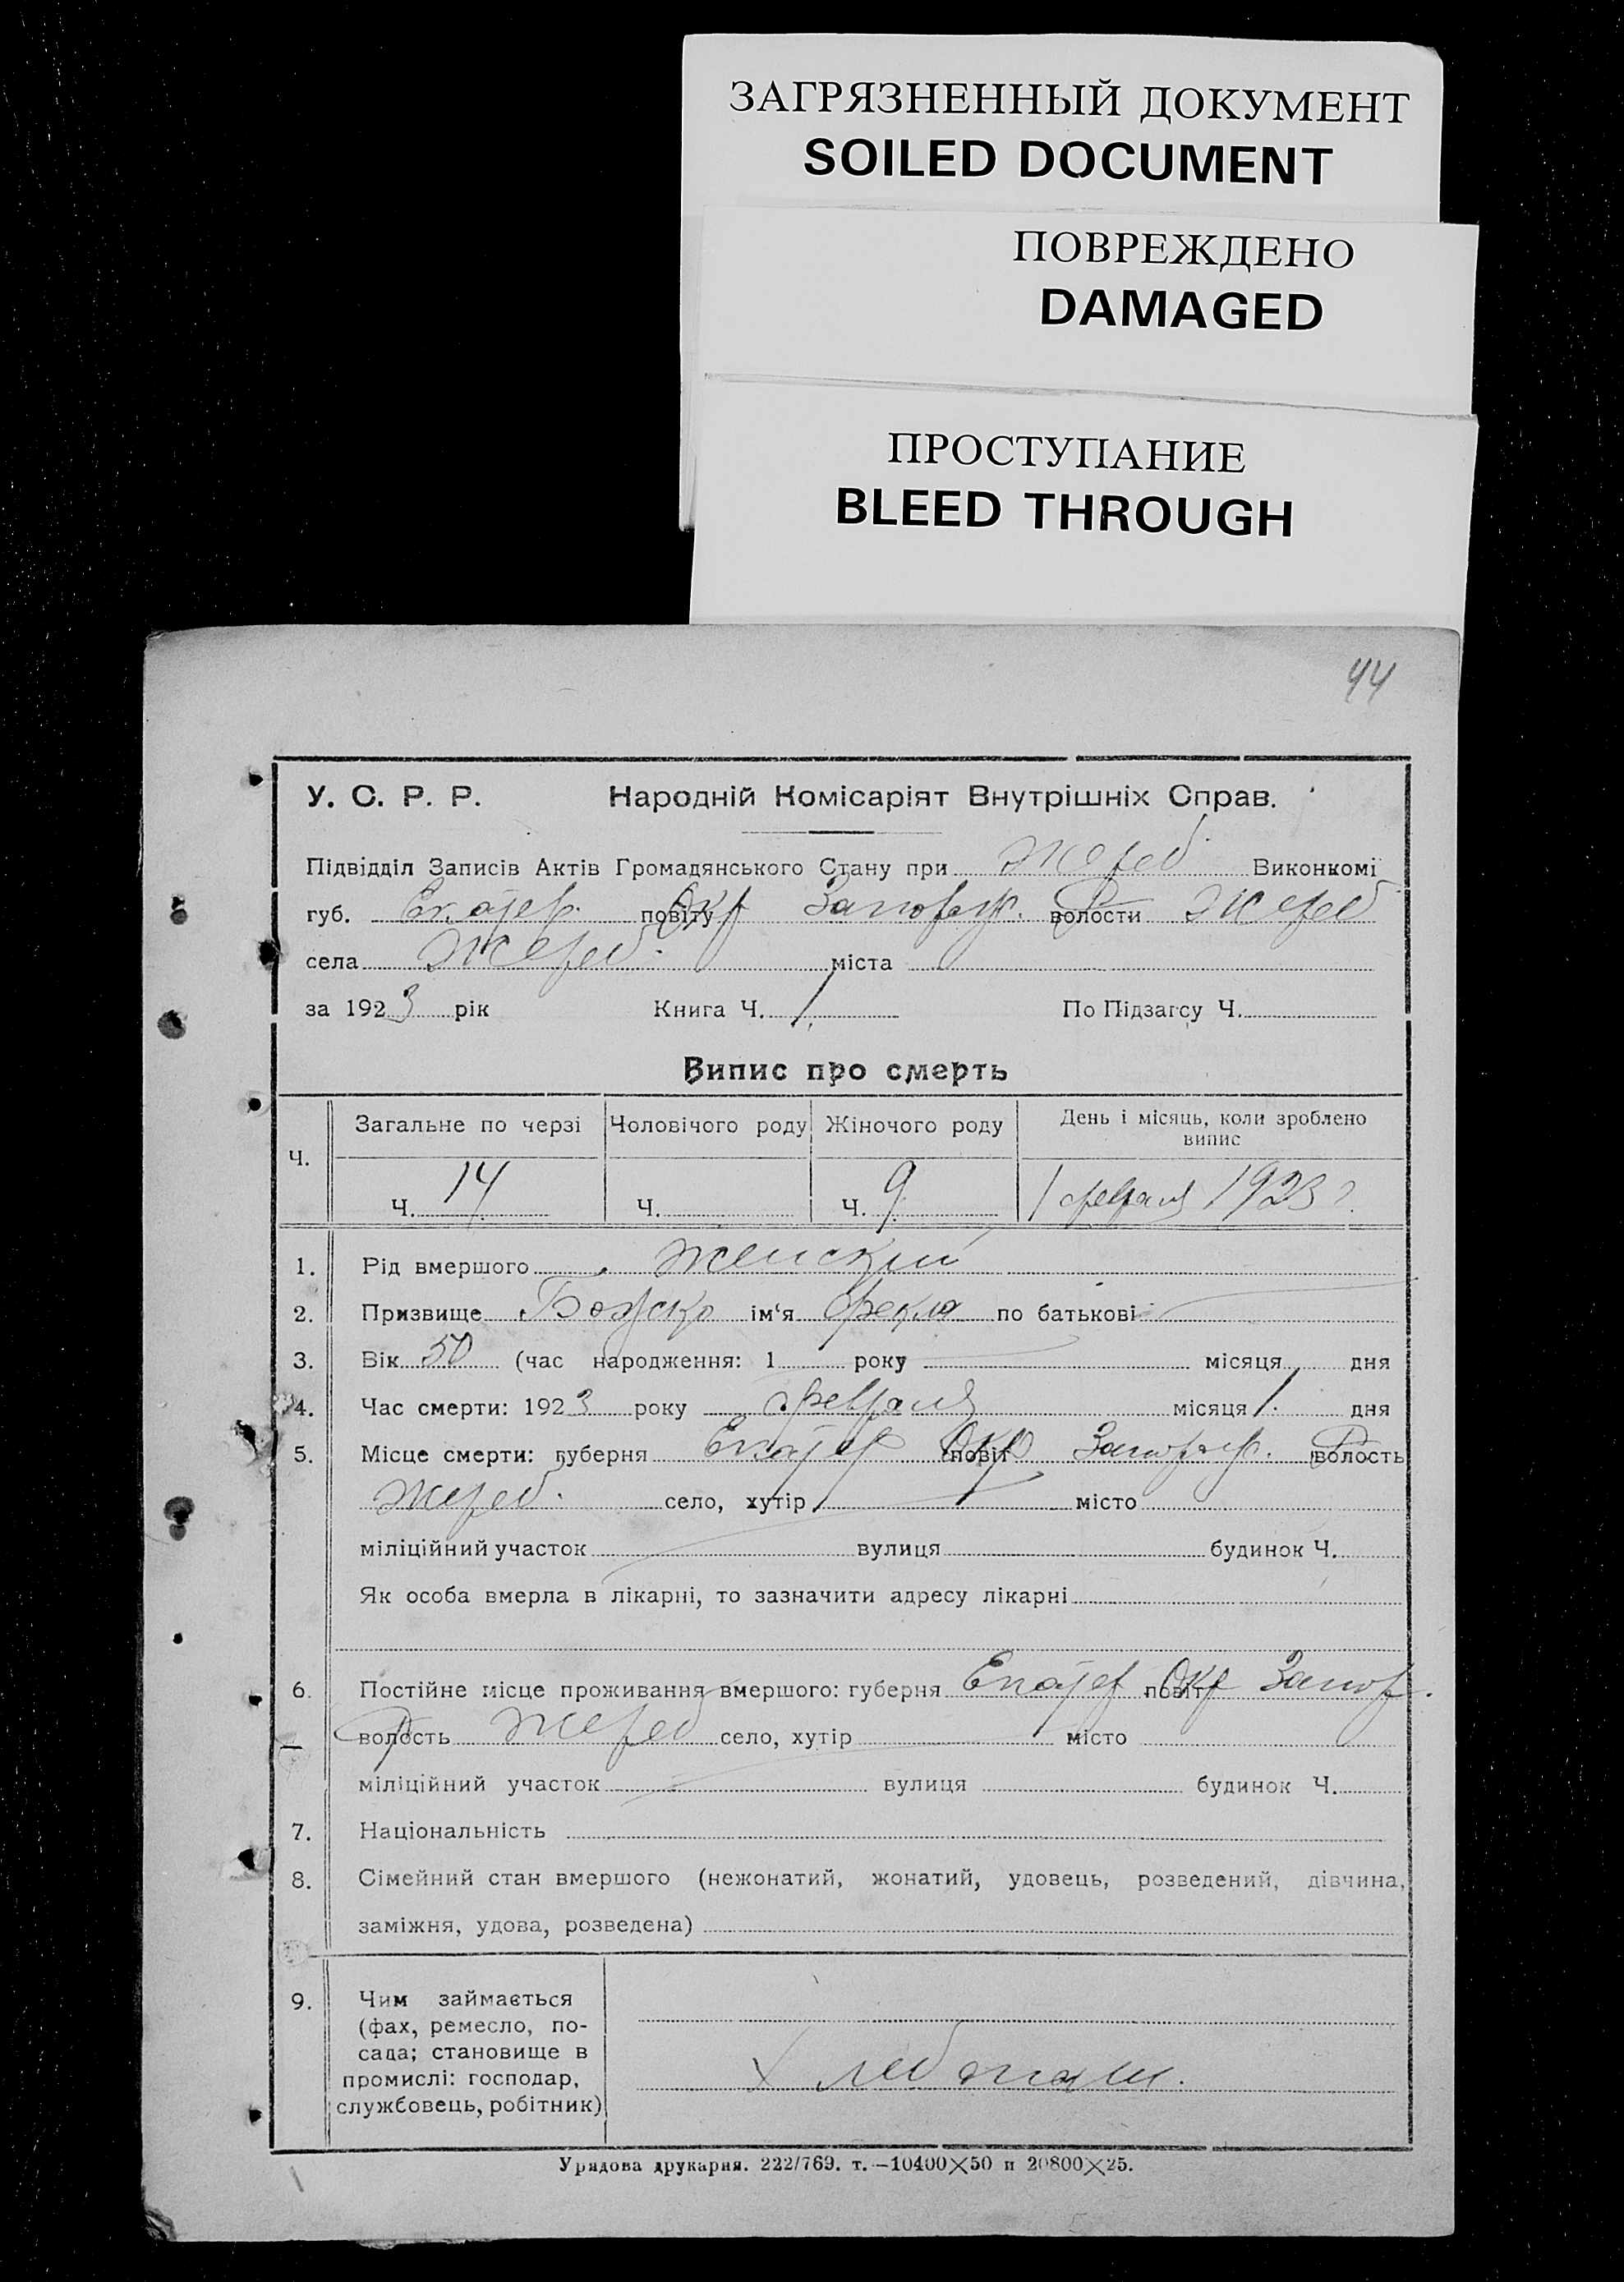 ЗАГРЯЗНЕННЫЙ ДОКУМЕНТ
SOILED DOCUMENT
ПОВРЕЖДЕНО
DAMAGED
ПРОСТУПАНИЕ
BLEED THROUGH
44
У. С. Р. Р. Народній Комісаріят Внутрішніх Справ.
Підвідділ Записів Актів Громадянського Стану при Жереб. Виконкомі
губ. Екатер. повіту Окр Запорож. волости Р Жереб
села Жереб. міста
за 1923 рік Книга Ч. 1 По Підзагсу Ч.
Випис про смерть
Ч. Загальне по черзі Чоловічого роду Жіночого роду День і місяць, коли зроблено випис
Ч. 14 Ч. Ч. 9 1 февраля 1923 г.
1. Рід вмершого Женский
2. Призвище Божко ім‘я Фекла по батькові
3. Вік 50 (час народження: 1 року місяця дня
4. Час смерти: 1923 року февраля місяця 1. дня
5. Місце смерти: губерня Екатер повіт Окр Запорож. волость Р
Жереб. село, хутір місто
міліційний участок вулиця будинок Ч.
Як особа вмерла в лікарні, то зазначити адресу лікарні
6. Постійне місце проживання вмершого: губерня Екатер повіт Окр Запор.
волость Р Жереб село, хутір місто
міліційний участок вулиця будинок Ч.
7. Національність
8. Сімейний стан вмершого (нежонатий, жонатий, удовець, розведений, дівчина,
заміжня, удова, розведена)
9. Чим займається
(фах, ремесло, по-
сада; становище в
промислі: господар,
службовець, робітник)
Хлебопаш.
Урядова друкарня. 222/769. т. —10400×50 п 20800×25.